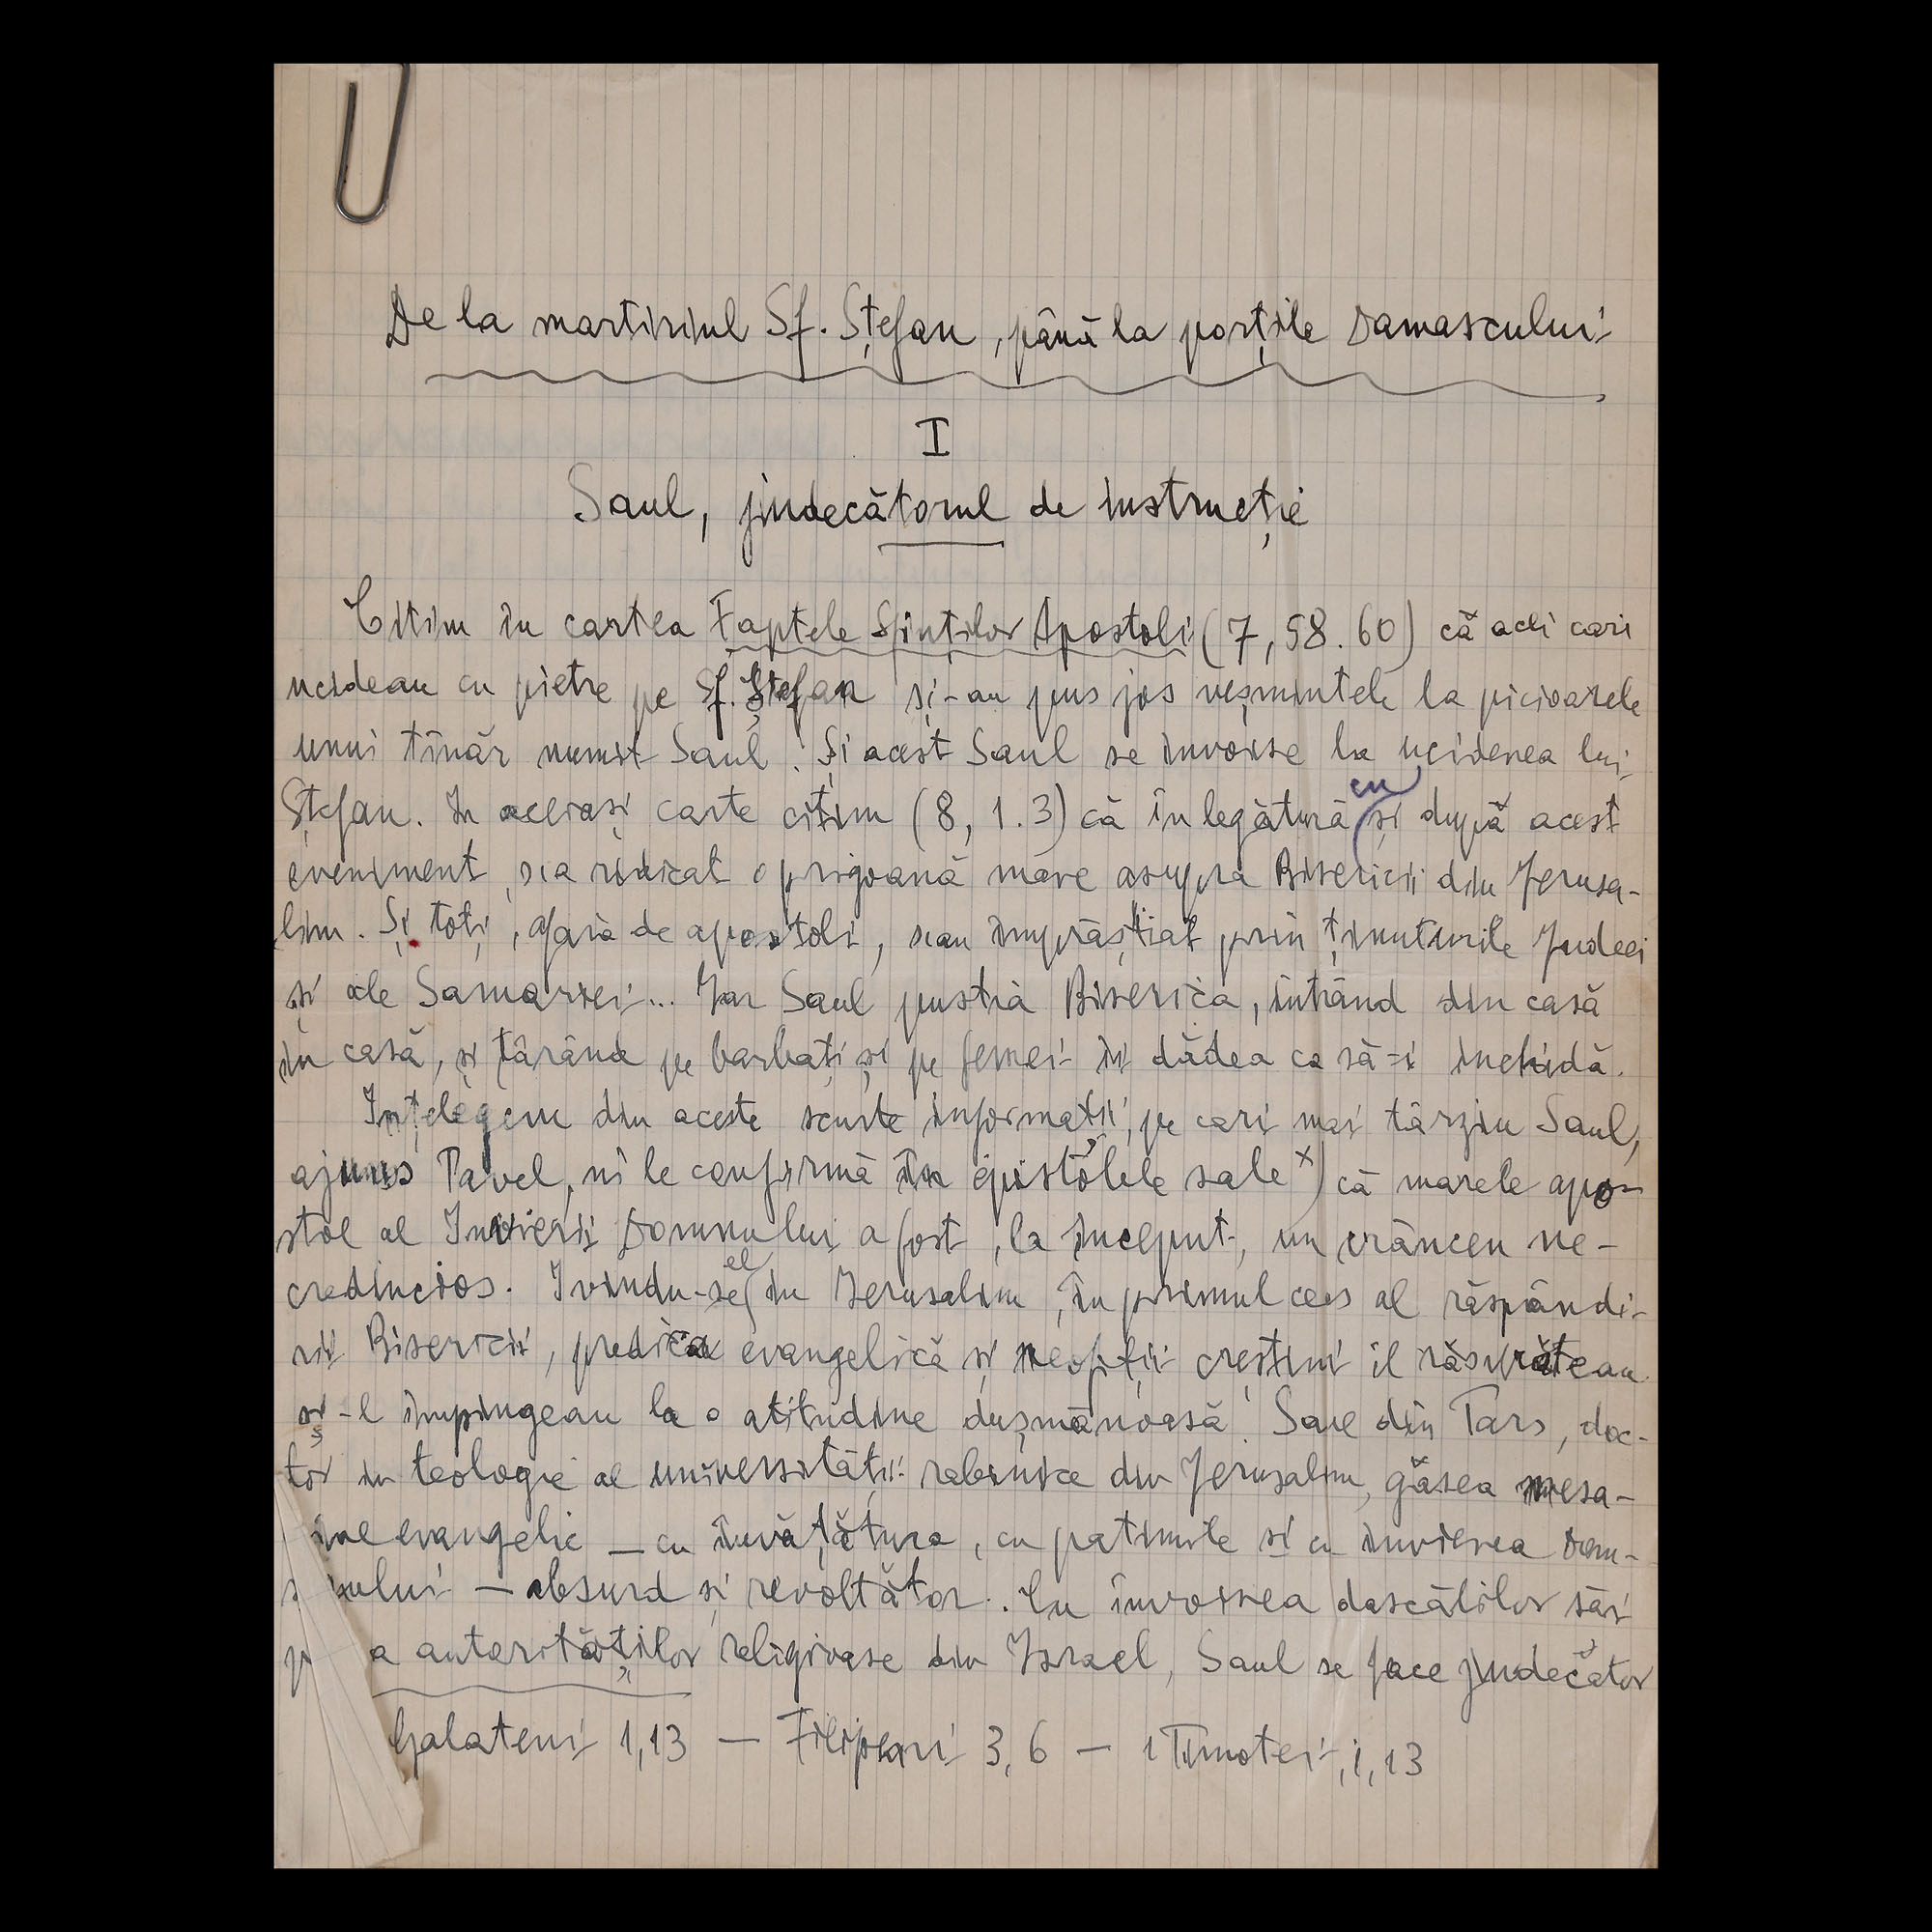 De la martiriul Sf. Ștefan, până la porțile Damascului
I
Saul, judecătorul de instrucție
Citim în cartea Faptele Sfinților Apostoli (7, 58. 60) că acei cari
ucideau cu pietre pe Sf. Ștefan și-au pus jos veșmintele la picioarele
unui tînăr numit Saul. Și acest Saul se învoise la uciderea lui
Ștefan. In aceiași carte citim (8, 1. 3) că în legătură cu și după acest
eveniment, s'a ridicat o prigoană mare asupra Bisericii din Jerusa-
lim. Și toți, afară de apostoli, s'au împrăștiat prin ținuturile Judeei
și ale Samariei... Iar Saul pustia Biserica, intrând din casă
în casă, și târând pe barbați și pe femei îi dădea ca să-i închidă.
Ințelegem din aceste scurte informații, pe cari mai târziu Saul,
ajuns Pavel, ni le confirmă în epistolele sale x) că marele apo-
stol al Invierii Domnului a fost, la început, un crâncen ne-
credincios. Ivindu-se el în Ierusalim, în primul ceas al răspândi-
rii Bisericii, predica evangelică și neofiții creștini îl răsvrăteau
și-l împingeau la o atitudine dușmănoasă. Saul din Tars, doc-
tor în teologie al universității rabinice din Jerusalim, găsea mesa-
evangelic — cu învățătura, cu patimile și cu învierea Dom-
nului — absurd și revoltător. Cu învoirea dascălilor săi
a autorităților religioase din Israel, Saul se face judecător
Galateni 1,13 — Filipeni 3,6 — 1 Timotei, 1,13